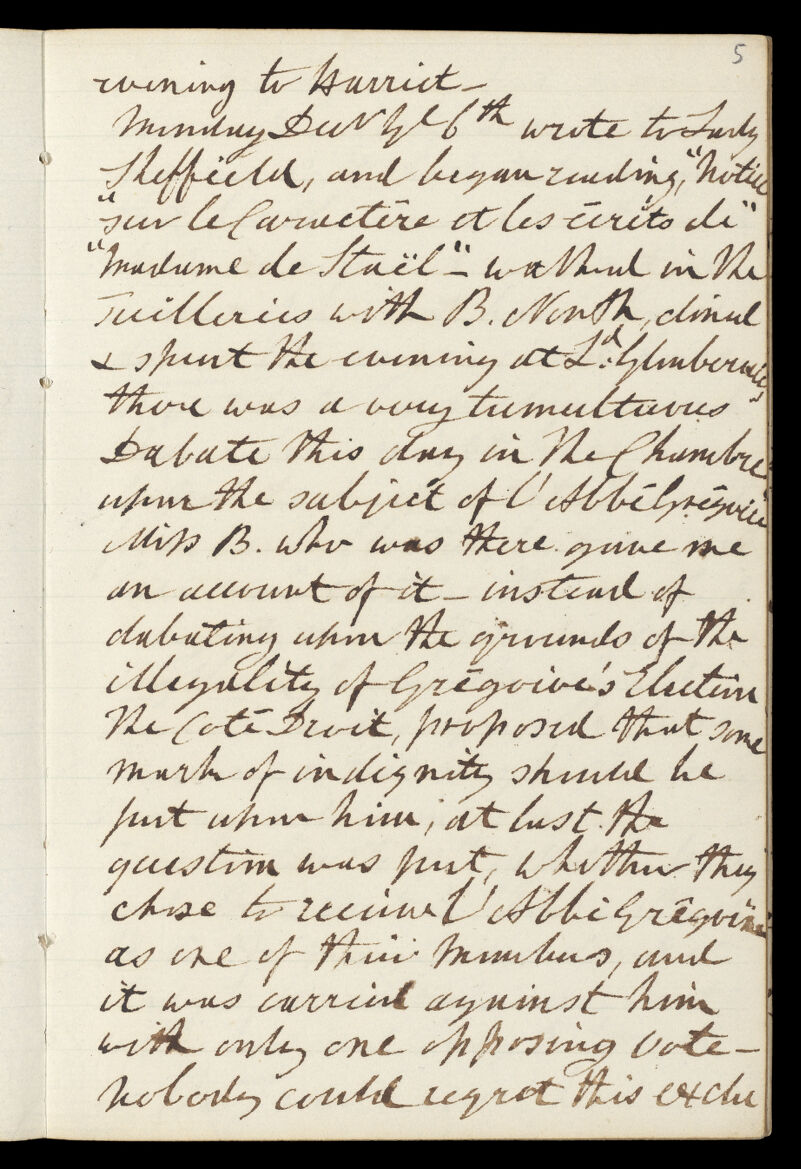 5
evening to Harriet_
Monday Decbr ye 6th wrote to Lady
Sheffield, and began reading, "Notice
"sur le Caractère et les écrits de"
"Madame de Staël"_ walked in the
Tuilleries with B. North, dined
& spent the evening at Ld: Glenbervie's
there was a very tumultuous
Debate this day in the Chambre
upon the subject of l'Abbé Grégoire
Miss B. who was there gave me
an account of it_ instead of
debating upon the grounds of the
illegality of Grégoire's Election
the Coté Droit, proposed that some
mark of indignity should be
put upon him; at last the
question was put, whether they
chose to receive l'Abbé Grégoire
as one of their Members, and
it was carried against him
with only one opposing vote_
nobody could regret this exclu